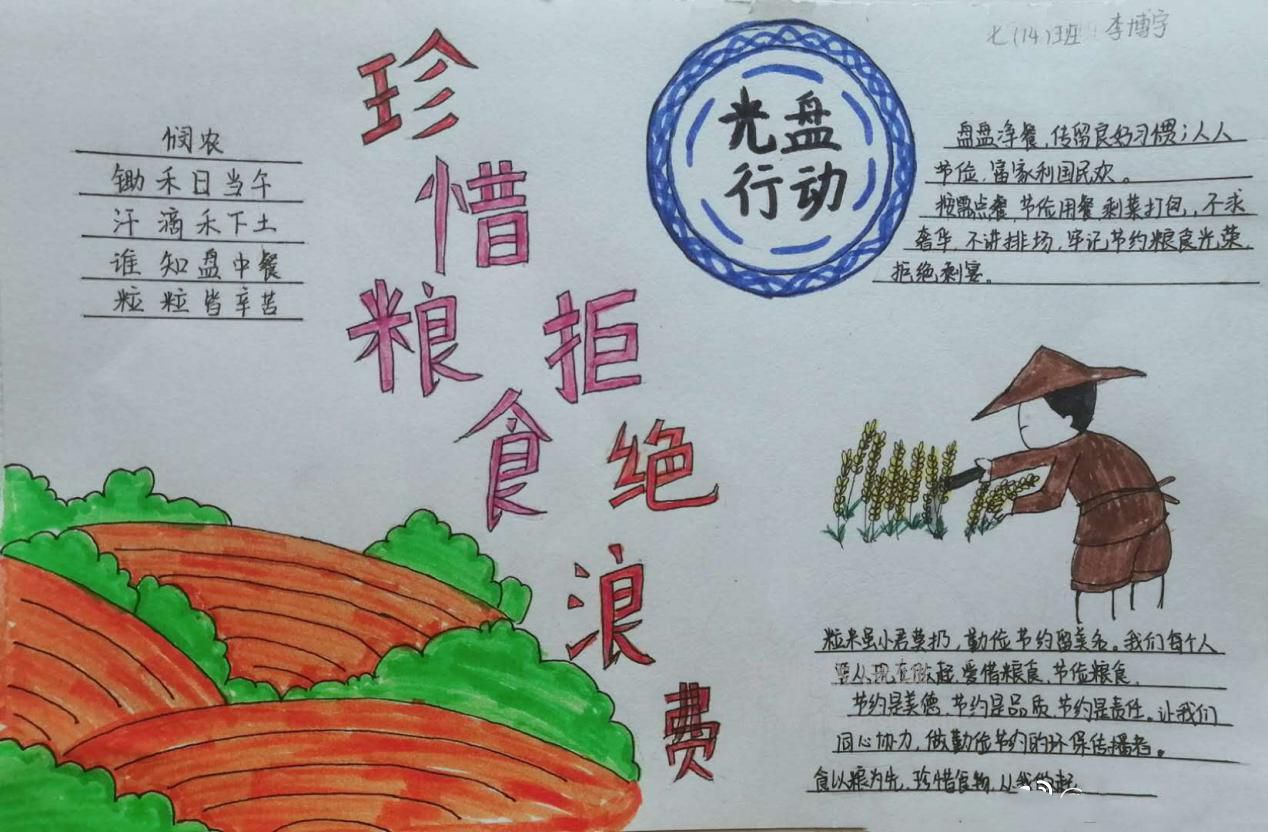 七(14)班 李博宇
珍惜粮食 拒绝浪费
光盘
行动
悯农
锄禾日当午
汗滴禾下土
谁知盘中餐
粒粒皆辛苦
盘盘净餐,传留良好习惯;人人
节俭,富家利国民欢。
按需点餐,节俭用餐,剩菜打包,不求
奢华,不讲排场,牢记节约粮食光荣,
拒绝剩宴。
粒米虽小君莫扔,勤俭节约留美名。我们每个人
要从现在做起,爱惜粮食,节俭粮食。
节约是美德,节约是品质,节约是责任。让我们
同心协力,做勤俭节约的环保传播者。
食以粮为先,珍惜食物,从我做起